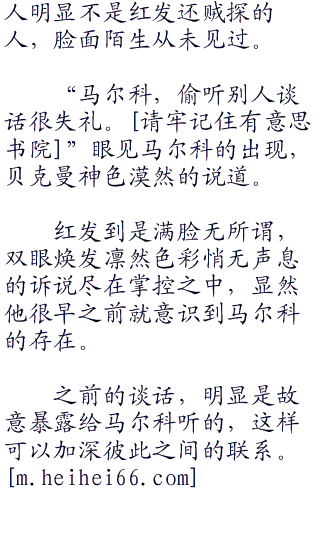 人明显不是红发还贼探的
人，脸面陌生从未见过。
“马尔科，偷听别人谈
话很失礼。[请牢记住有意思
书院]”眼见马尔科的出现，
贝克曼神色漠然的说道。
红发到是满脸无所谓，
双眼焕发凛然色彩悄无声息
的诉说尽在掌控之中，显然
他很早之前就意识到马尔科
的存在。
之前的谈话，明显是故
意暴露给马尔科听的，这样
可以加深彼此之间的联系。
[m.heihei66.com]